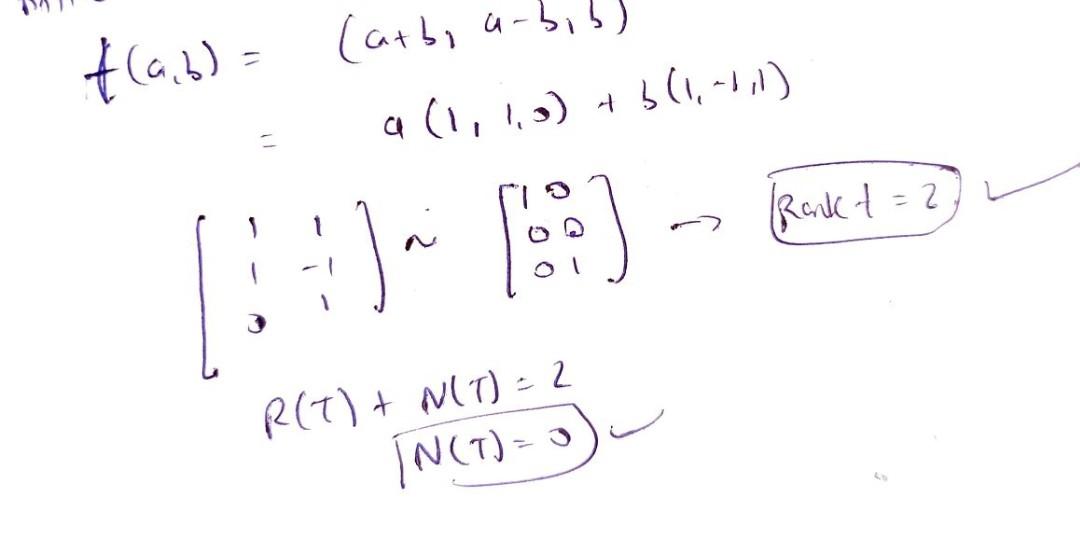 f(a,b) = (a+b, a-b, b)
= a (1, 1, 0) + b(1, -1, 1)
[ 1 1 ; 1 -1 ; 0 1 ] ~ [ 1 0 ; 0 0 ; 0 1 ] → Rank t = 2 ✓
R(T) + N(T) = 2
N(T) = 0 ✓